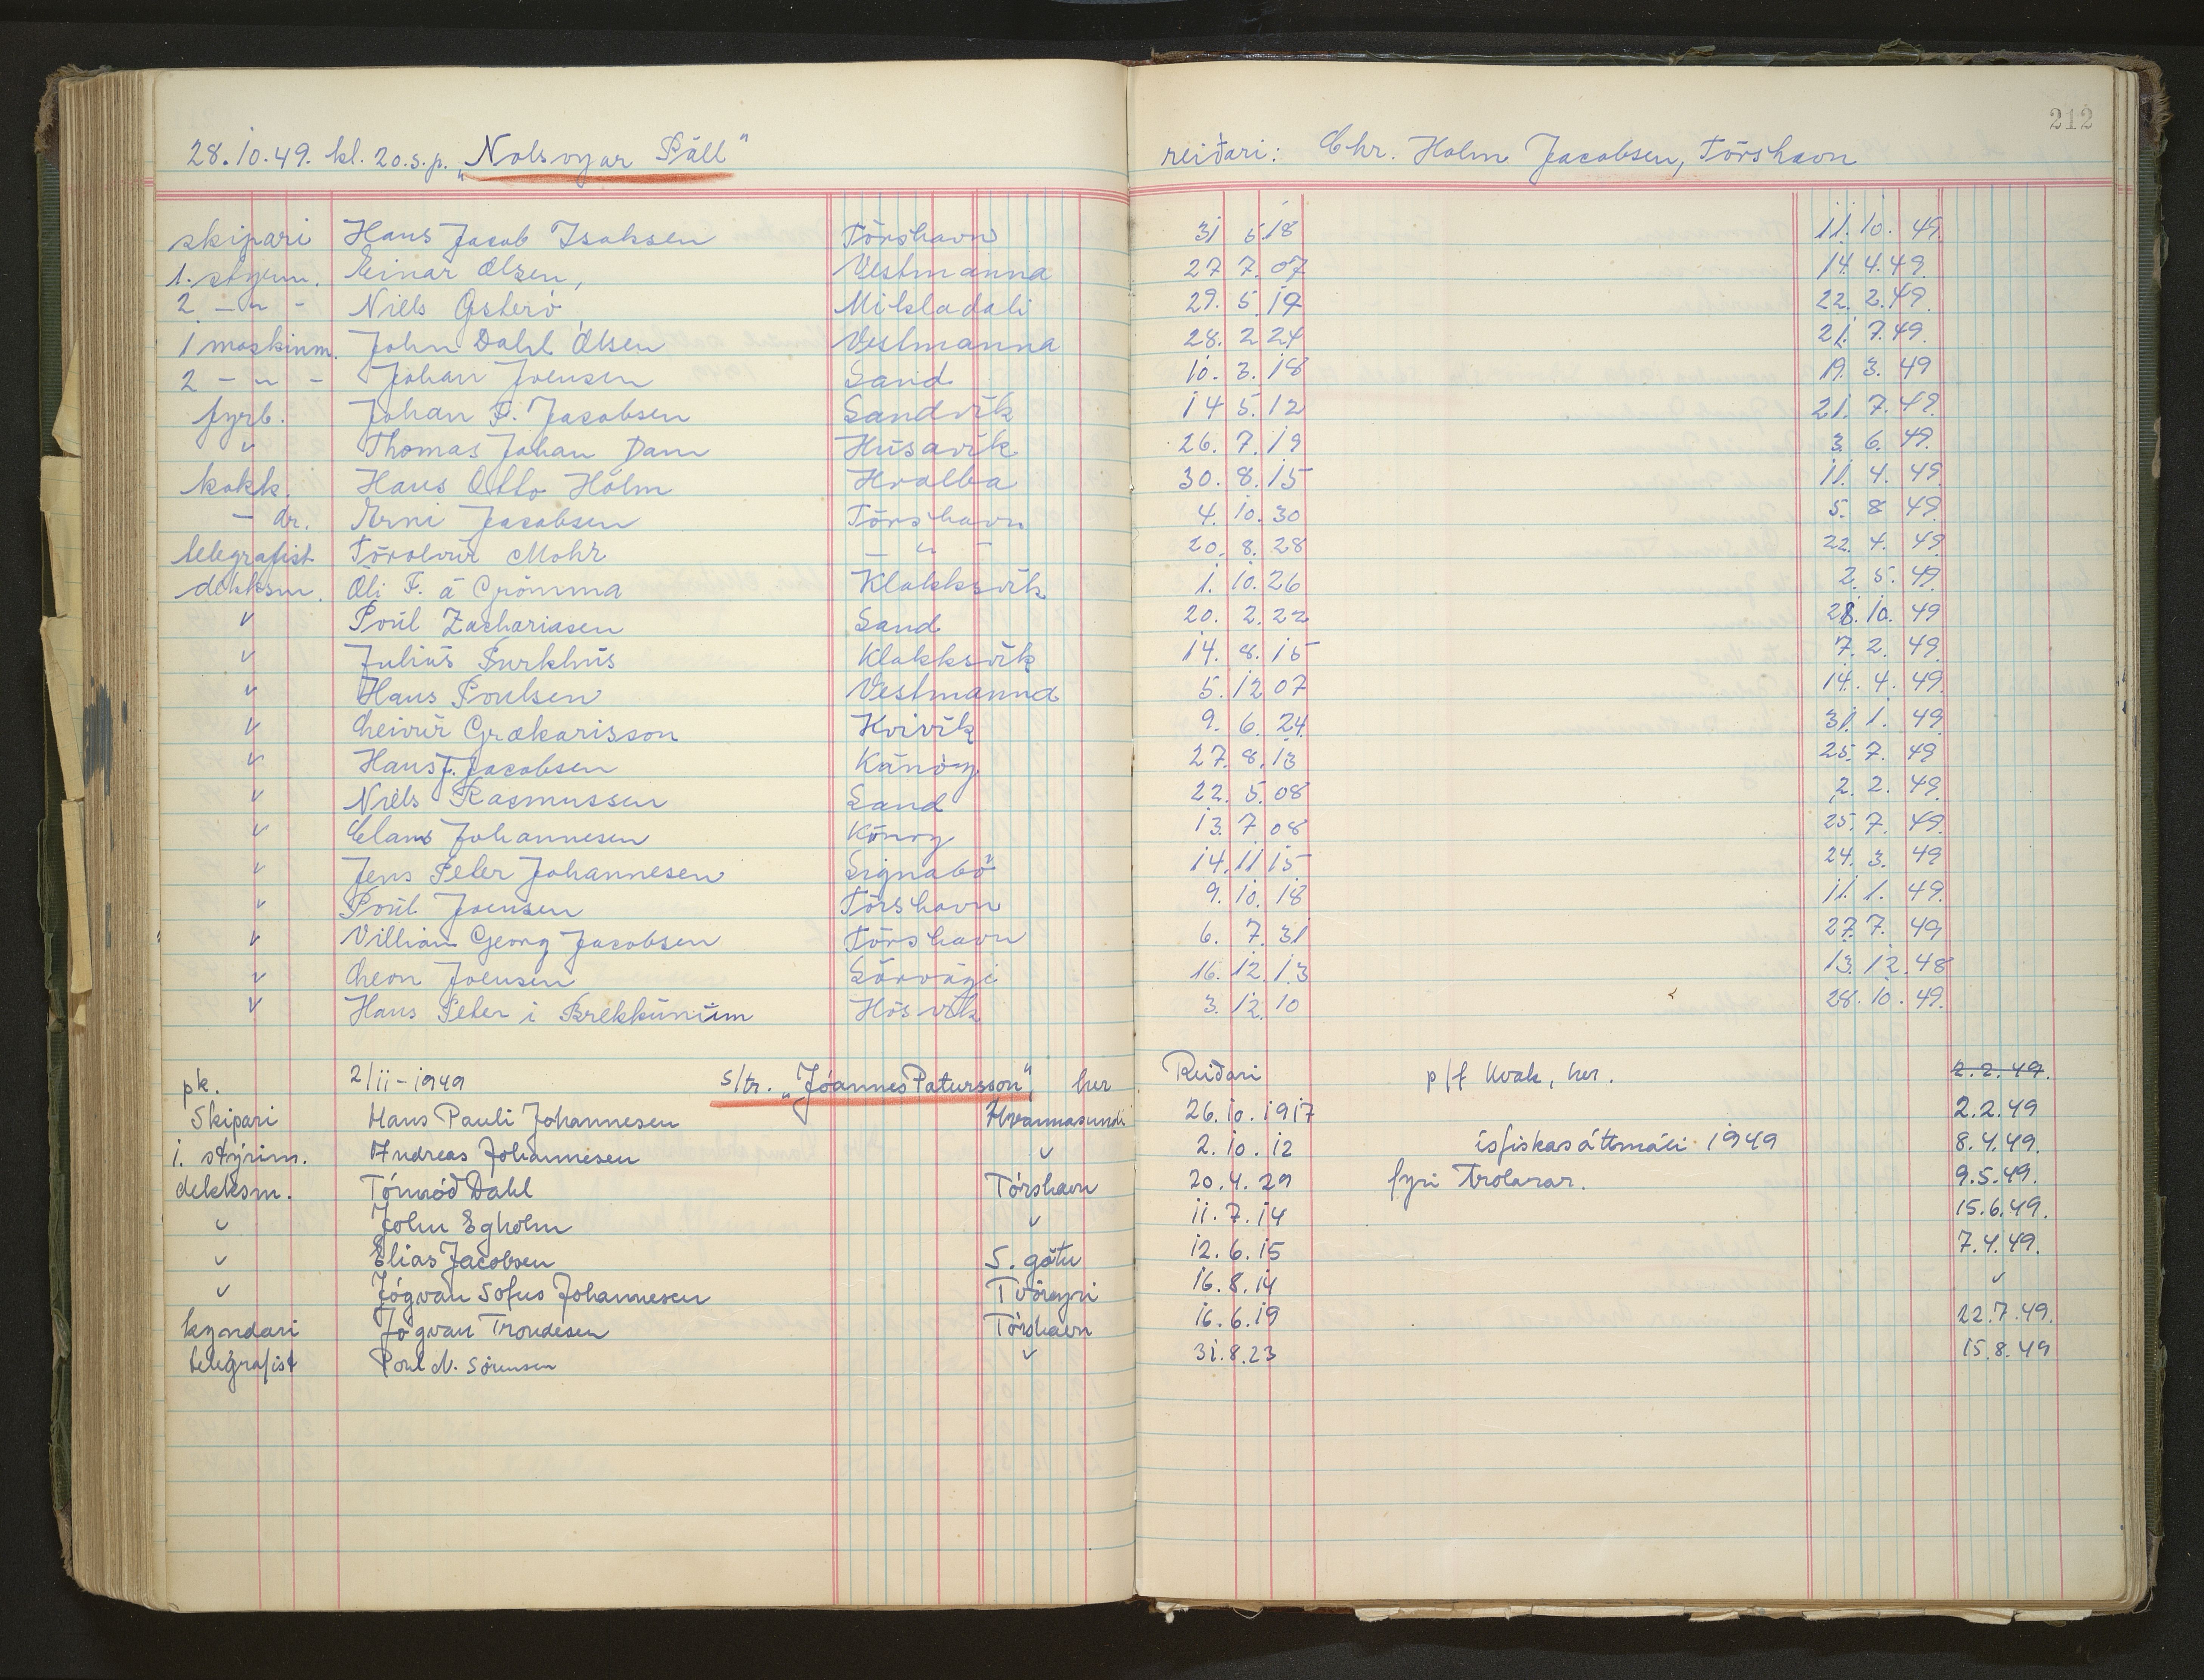 212
28.10.49. kl. 20.s.p. „Nolsoyar Páll" reiðari: Chr. Holm Jacobsen, Tórshavn
skipari Hans Jacob Isaksen Tórshavn 31 5.18 11.10.49.
1. stýrm. Einar Olsen, Vestmanna 27 7.07 14.4.49.
2 - " - Niels Østerö Mikladali 29.5.19 22.2.49.
1 maskinm. John Dahl Olsen Vestmanna 28.2 24 21.7.49.
2 - " - Johan Joensen Sand 10.3.18 19.3.49
fyrb. Johan F. Jacobsen Sandvík 14 5.12 21.7.49.
" Thomas Johan Dam Húsavík 26.7.19 3.6.49.
kokk. Hans Otto Holm Hvalba 30.8.15 11.4.49.
- dr. Arni Jacobsen Tórshavn 4.10.30 5.8 49.
telegrafist Tórolvur Mohr - " - 20.8.28 22.4.49
dekksm. Óli F. á Grómma Klakksvík 1.10.26 2.5.49.
" Poul Zachariasen Sand 20.2.22 28.10.49
" Julius Purkhús Klakksvík 14.8.15 7.2.49.
" Hans Poulsen Vestmanna 5.12 07 14.4.49.
" Leivur Grækarisson Kvívík 9.6.24. 31.1.49
" Hans J. Jacobsen Kánöy. 27.8.13 25.7.49
" Niels Rasmussen Sand 22.5.08 2.2.49.
" Claus Johannesen Kónoy 13.7 08 25.7.49.
" Jens Peter Johannesen Signabö 14.11 15 24.3.49
" Poul Joensen Tórshavn 9.10.18 11.1.49.
" Villiam Georg Jacobsen Tórshavn 6.7.31 27.7.49
" Leon Joensen Sörvági 16.12.13 13.12.48
" Hans Peter i Brekkunum Hósvík 3.12.10 28.10.49.
pk. 2/11-1949 s/tr. „Jóannes Patursson", her Reiðari p/f Kvak, her. 2.2.49.
Skipari Hans Pauli Johannesen Hvannasundi 26.10.1917 2.2.49
1. stýrim. Andreas Johannesen " 2.10.12 ísfiskasáttmáli 1949 8.4.49.
dekksm. Tórmóð Dahl Tórshavn 20.4.29 fyri Trolarar. 9.5.49.
" John Egholm " 11.7.14 15.6.49.
" Elias Jacobsen S. götu 12.6.15 7.4.49.
" Jógvan Sofus Johannesen Tvöroyri 16.8.14 "
kyndari Jógvan Trondesen Tórshavn 16.6.19 22.7.49.
telegrafist Poul N. Sörensen " 31.8.23 15.8.49